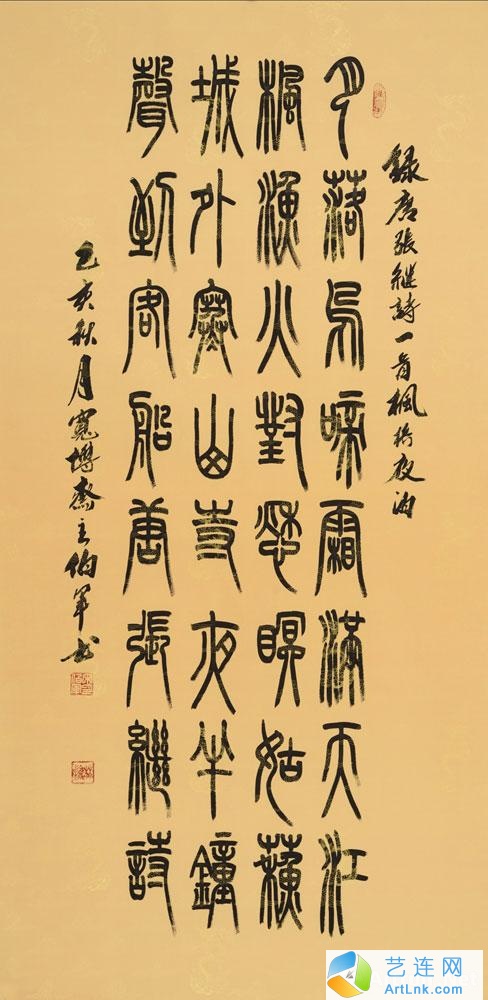 錄唐張繼詩一首楓橋夜泊
月落烏啼霜滿天江
楓漁火對愁瞑姑蘇
城外寒山寺夜半鐘
聲到客船唐張繼詩
己亥秋月寬博齋主伯軍書
艺连网
ArtLnk.com